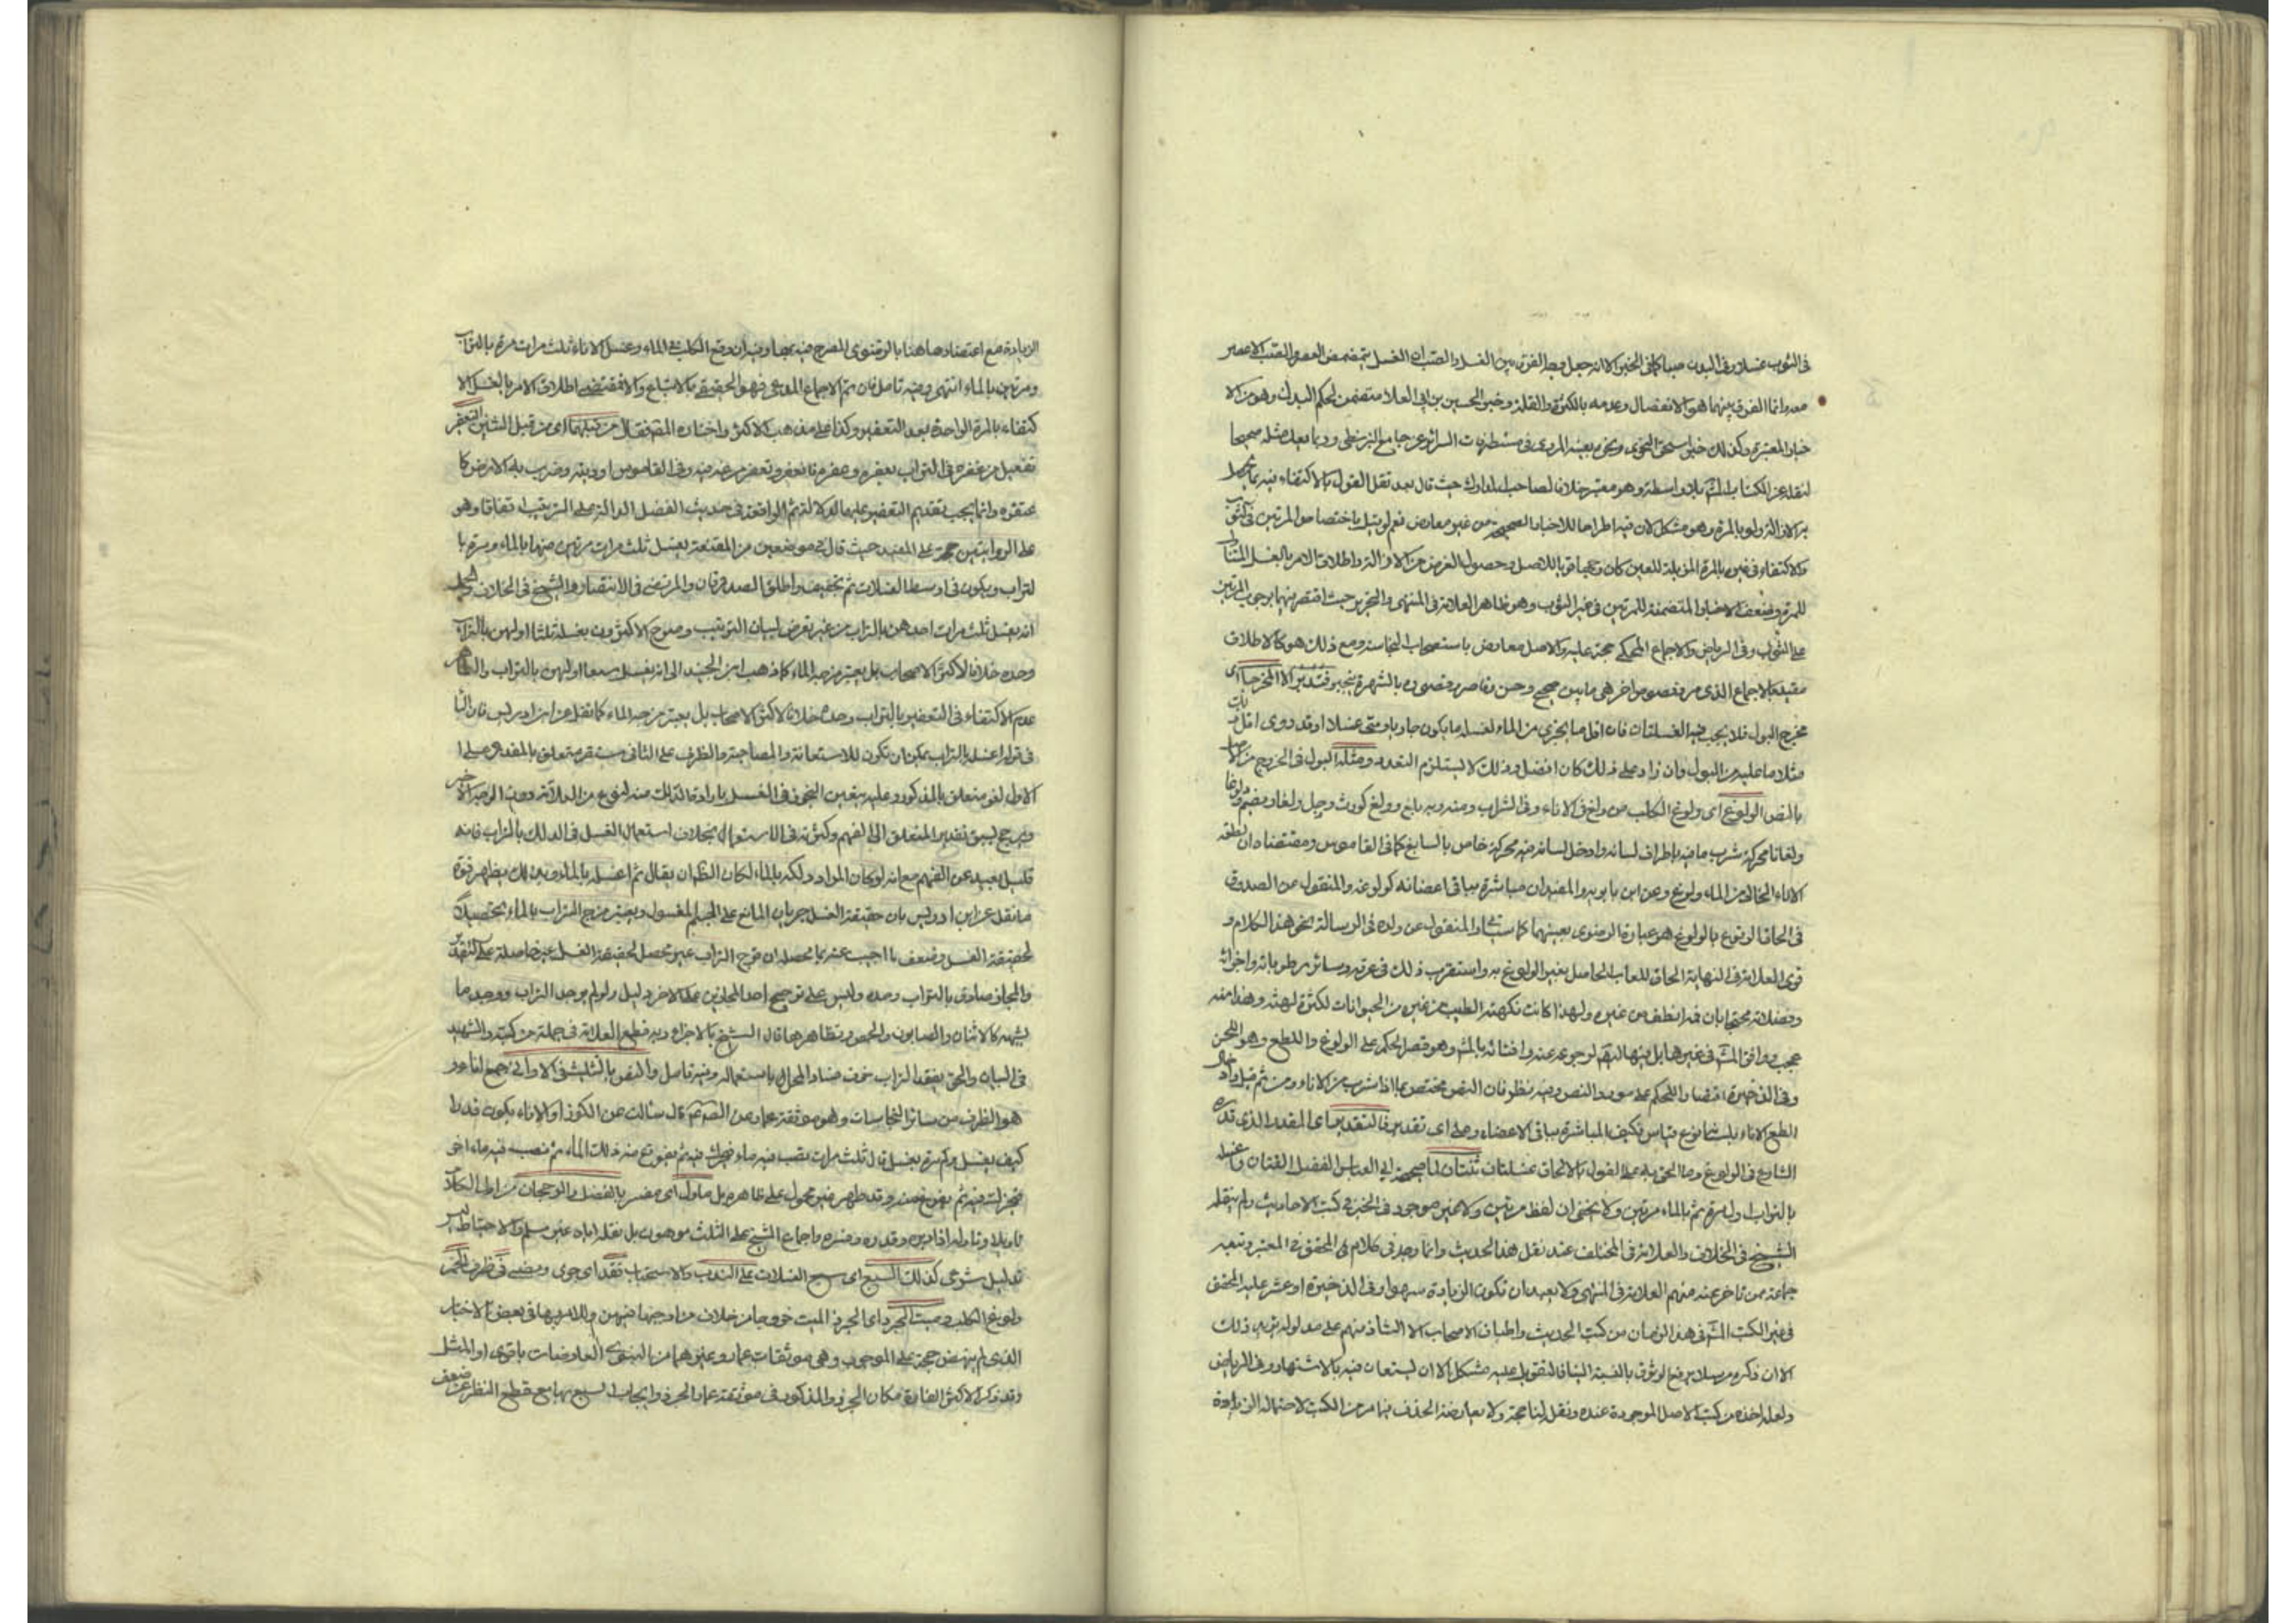 في الثوب غسلا وفي البدن صبا كما في الخبر الا انه جعل فيه الفرق بين الغسل والصب ان الغسل يتضمن العصر والصب لا عصر
معه وانما الفرق بينهما هو الانفصال وعدمه بالكثرة والقلة وخبر الحسين بن ابي العلا متضمن لحكم البدن وهو من الا
خبار المعتبرة وكذلك خبر اسحق النحوي ونحوه بعينه المروي في مستطرفات السرائر عن جامع البزنطي وربما يعد مثله صحيحا
لنقله عن الكتاب بلا واسطة وهو معتبر خلافا لصاحب المدارك حيث قال بعد نقل القول بالاكتفاء فيه بما يحصل
به الازالة ولو بالمرة وهو مشكل لان فيه اطراحا للاخبار الصحيحة من غير معارض نعم لو قيل باختصاص المرتين في الثوب
والاكتفاء في غيره بالمرة المزيلة للعين كان وجها قويا للاصل وحصول الغرض من الازالة واطلاق الامر بالغسل المتناول
للمرة وضعف الاخبار المتضمنة للمرتين في غير الثوب وهو ظاهر العلامة في المنتهى والتحرير حيث اقتصر فيهما بوجوب المرتين
على الثوب وفي الرياض والاجماع المحكي حجة عليه والاصل معارض باستصحاب النجاسة ومع ذلك هو كالاطلاق
مقيد بالاجماع الذي مر ونصوص اخر هي ما بين صحيح وحسن وقاصر وقصوره بالشهرة ينجبر فتدبر الا المخرج اي
مخرج البول فلا يجب فيه الغسلتان فان اقل ما يجزي من الماء لغسله ما يكون جاريا ويسمى غسلا وقد روى اقل ذلك
مثلا ما عليه من البول وان زاد على ذلك كان افضل وذلك لا يستلزم التعدد ومثله البول في الخروج من الاصل
بالنص الولوغ اي ولوغ الكلب من ولغ في الاناء وفي الشراب ومنه وبه يلغ وولغ كورث ووجل ولغا ويضم وولوغا
ولغانا محركة شرب ما فيه باطراف لسانه وادخل لسانه فيه فحركه خاص بالسباع كما في القاموس ومقتضاه ان لطعه
الاناء الخالي من الماء ولوغ وعن ابن بابويه والمفيد ان مباشرة بباقي اعضائه كولوغه والمنقول عن الصدوق
في الحاق الوقوع بالولوغ هو عبارة الرضوي بعينهما كما سيأتي والمنقول عن ولده في الرسالة نحو هذا الكلام و
قوى العلامة في النهاية الحاق اللعاب الحاصل بغير الولوغ به واستقرب ذلك في عرقه وسائر رطوباته واجزائه
وفضلاته محتجا بان فمه انظف من غيره ولهذا كانت نكهته اطيب من غيره من الحيوانات لكثرة لهثه وهذا منه
عجيب ووافق في غيرها بل فيها لرجوعه عنه وافتائه وهو قصر الحكم على الولوغ واللطع وهو اللحس
وفي الذخيرة اقتصارا للحكم على مورد النص وفيه نظر فان النص مختص بما اذا شرب من الاناء ومن ثم قيل واما
لطع الاناء بلسانه نوع قياس فكيف المباشرة بباقي الاعضاء وعلى اي تقدير فالتقدير اي المقدر الذي قدره
الشارع في الولوغ وما الحق به على القول بالالحاق غسلتان ثنتان لما صحيحة ابي العباس الفضل القتان واغسله
بالتراب اول مرة ثم بالماء مرتين ولا يخفى ان لفظ مرتين ولا غير موجود في الخبر في كتب الاحاديث ولم ينقله
الشيخ في الخلاف والعلامة في المختلف عند نقل هذا الحديث وانما وجد في كلام المحقق في المعتبر وتبعه
جماعة ممن تاخر عنه منهم العلامة في المنتهى ولا يبعد ان تكون الزيادة سهوا وفي الذخيرة او عثر عليه المحقق
في غير الكتب في هذا الزمان من كتب الحديث واطباق الاصحاب الا الشاذ منهم على مدلوله يؤيد ذلك
الا ان ذكره مرسلا يرفع الوثوق بالنسبة الينا فالتعويل عليه مشكل الا ان يستعان فيه بالاشتهار وفي الرياض
ولعله اخذه من كتب الاصل الموجودة عنده ونقل لنا حجة ولا يعارضه الحذف فيما مر من الكتب لاحتماله الزيادة
الزيادة مع اعتضادها هنا بالرضوي المصرح فيه بها وفيه ان وقع الكلب في الماء وغسل الاناء ثلث مرات مرة بالتراب
ومرتين بالماء انتهى وفيه تامل فان تم الاجماع المدعى فهو الحقيق بالاتباع والا فمقتضى اطلاق الامر بالغسل الا
كتفاء بالمرة الواحدة بعد التعفير وكذا على مذهب الاكثر واختاره فقال من قبلهما اي من قبل الثنتين التعفير
تفعيل من عفره في التراب يعفره وعفره فانعفر وتعفر مرغه فيه وفي القاموس او دسه وضرب به الارض كا
عتفره وانما يجب تقديم التعفير عليهما لدلالة ثم الواقعة في حديث الفضل الدالة على الترتيب اتفاقا وهو
على الروايتين حجة على المفيد حيث قال في موضعين من المقنعة يغسل ثلث مرات مرتين منها بالماء ومرة با
لتراب ويكون في اوسط الغسلات ثم يجفف واطلق الصدوقان والمرتضى في الانتصار والشيخ في الخلاف
انه يغسل ثلث مرات احدهن بالتراب من غير تعرض لبيان الترتيب وصرح الاكثرون بغسله ثلثا اوليهن بالتراب
وحده خلافا لاكثر الاصحاب بل يعتبر مزجه الماء كما ذهب ابن الجنيد الى انه يغسل سبعا اوليهن بالتراب
عدم الاكتفاء في التعفير بالتراب وحده خلافا لاكثر الاصحاب بل يعتبر مزجه الماء كما نقل عن ابن ادريس فان البا
في قوله اغسله بالتراب يمكن ان تكون للاستعانة والمصاحبة والظرف على الثاني مستقر متعلق بالمقدر وعلى ا
لاول لغو متعلق بالمذكور وعليه يتعين التجوز في الغسل بارادة الدلك منه لنوع من العلاقة دون الوجه الاخير
ويرجح لسبق تقدير المتعلق الى الفهم وكثرته في الاستعمال بخلاف استعمال الغسل في الدلك بالتراب فانه
قليل بعيد عن الفهم مع انه لو كان المراد دلكه بالماء لكان ان يقال ثم اغسله بالماء وبذلك يظهر قوة
ما نقل عن ابن ادريس بان حقيقة الغسل جريان المائع على الجسم المغسول ويعتبر مزج التراب بالماء تحصيلا
لحقيقة الغسل وضعف ما اجيب عنه بما محصله ان مزج التراب غير محصل لحقيقة الغسل غير حاصلة على التقدير
والمجاز صادق بالتراب وحده وليس على ترجيح احد المجازين على الاخر دليل ولو لم يوجد التراب ووجد ما
يشبهه كالاشنان والصابون والجص ونظائرها قال الشيخ بالاجزاء وبه قطع العلامة في جملة من كتبه والشهيد
في البيان والحق بفقد التراب خوف فساد المحل باستعماله وفيه تامل والنص بالتثليث في الاواني جمع اناء و
هو الظرف من سائر النجاسات وهو موثقة عمار عن قال سئلت عن الكوز او الاناء يكون قذرا
كيف يغسل وكم مرة يغسل قال ثلث مرات يصب فيه ماء فيحرك فيه ثم يفرغ منه ذلك الماء ثم يصب فيه ماء اخر
فيحرك فيه ثم يفرغ منه وقد طهر غير محمول على ظاهره بل ماول اي مفسر بالفضل والرجحان من اول الكلام
تاويلا وتاوله اذا دبره وقدره وفسره واجماع الشيخ على الثلث موهون بل نقله اياه غير مسلم والاحتياط ليس
بدليل شرعي كذلك السبع اي سبع الغسلات على الندب والاستحباب فقد اي جرى ومضى في ظرف الخمر
ولوغ الكلب وميت الجرذ اي الجرذ الميت خروجا من خلاف من اوجبها فيهن وللامر بها في بعض الاخبار
الذي لم ينهض حجة على الوجوب وهي موثقات عمار وغيرها من العارضات باقوى او المثل
وقد ذكر الاكثر الفارة مكان الجرذ والمذكور في موثقة عمار الجرذ وايجاب السبع بها مع قطع النظر عن ضعف